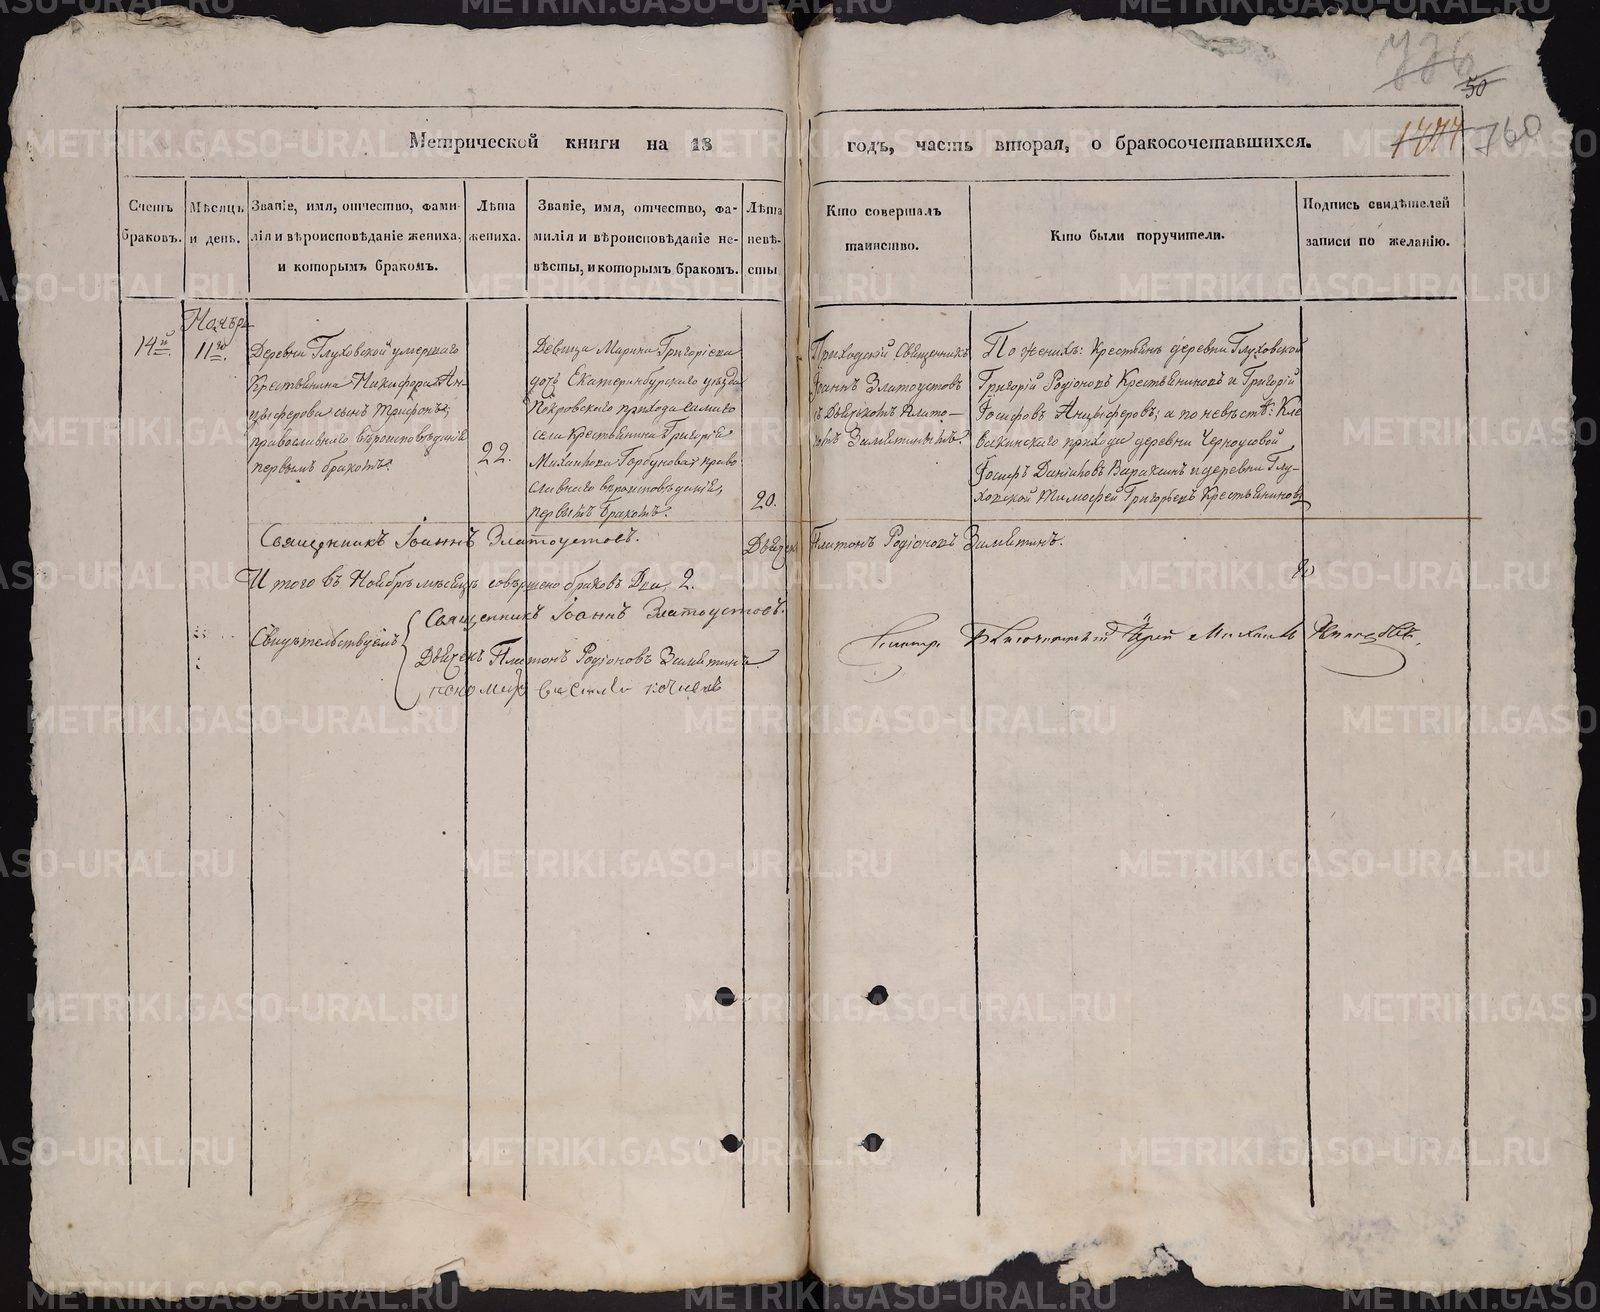 50
760
Метрической книги на 18 годъ, часть вторая, о бракосочетавшихся.
Счетъ браковъ.
Мѣсяцъ и день.
Званіе, имя, отчество, фами-
лія и вѣроисповѣданіе жениха,
и которымъ бракомъ.
Лѣта
жениха.
Званіе, имя, отчество, фа-
милія и вѣроисповѣданіе не-
вѣсты, и которымъ бракомъ.
Лѣта
невѣ-
сты
Кто совершалъ
таинство.
Кто были поручители.
Подпись свидѣтелей
записи по желанію.
14й
11го
Деревни Глуховской умершаго
Крестьянина Никифора Ан-
цыферова сынъ Трифонъ,
православнаго вѣроисповѣданія
первымъ бракомъ.
22.
Дѣвица Марина Григоріева
дочь Екатеринбургскаго уѣзда
Покровскаго прихода самаго
села Крестьянина Григорія
Михайлова Горбунова право
славнаго вѣроисповѣданія,
первымъ бракомъ.
20.
Приходскій Священникъ
Іоаннъ Златоустовъ
съ Дьячкомъ Плато-
номъ
По женихѣ: Крестьяне деревни Глуховской
Григорій Родіоновъ Крестьяниновъ и Григорій
Іосифовъ Анцыферовъ; а по невѣстѣ: Кле
вакинскаго прихода деревни Черноусовой
Іосифъ Даніиловъ Вараксинъ и деревни Глу-
ховской Тимофей Григорьевъ Крестьяниновъ
Священникъ Іоаннъ Златоустовъ.
Дьячекъ Платонъ Родіоновъ
Итого въ Ноябрѣ мѣсяцѣ совершено браковъ Два, 2.
Свидѣтельствуемъ
Священникъ Іоаннъ Златоустовъ.
Дьячекъ Платонъ Родіоновъ
пономарь
Благочинный Іерей Михаилъ
METRIKI.GASO-URAL.RU